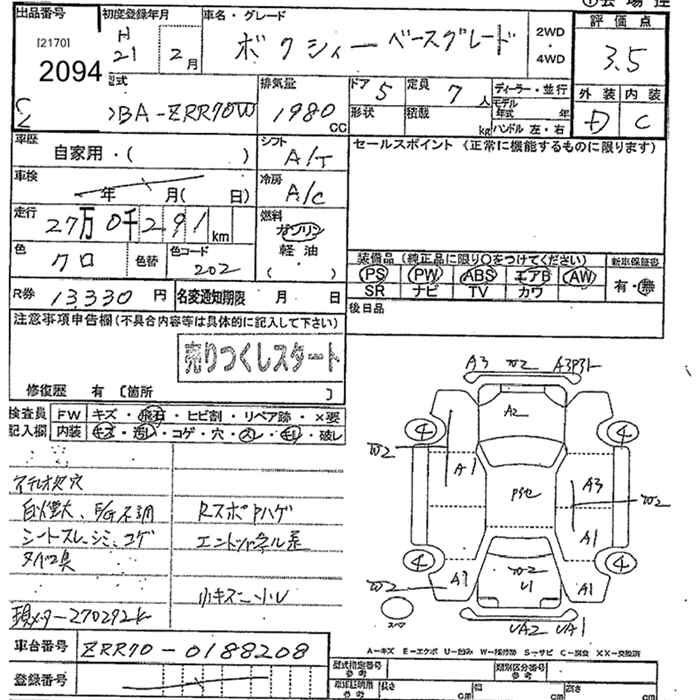 出品番号 初度登録年月 車名・グレード 評価点
[2170] H
2094 21年 2月 ボクシィー ベースグレード 2WD・4WD 3.5
型式 排気量 ドア 5 定員 7人 ディーラー・並行 外装 内装
DBA-ZRR70W 1980cc 形状 積載 kg モデル年式 年 ハンドル 左・右 D C
車歴 シフト セールスポイント (正常に機能するものに限ります)
自家用・( ) A/T
車検 年 月( 日) 冷房 A/C
走行 27万0千291km 燃料 ガソリン
軽油
( )
色 クロ 色替 色コード 202
装備品 (純正品に限り○をつけてください) 新車保証書
PS PW ABS エアB AW 有・無
SR ナビ TV カワ
R券 13,330円 名変通知期限 月 日 後日品
注意事項申告欄(不具合内容等は具体的に記入して下さい)
売りつくしスタート
修復歴 有 〔箇所 〕
検査員 FW キズ・飛石・ヒビ割・リペア跡・×要
記入欄 内装 キズ・汚れ・コゲ・穴・スレ・モレ・破レ
A3 W2
A2
④ ④
W2
A1 A3
W2
A1
④ ④
W2 A1 W2 A1
U1
スペア
UA2 UA1
シートスレ、シミ、コゲ
タバコ臭
小キズ 小U
現メーター270292k
A-キズ E-エクボ U-凹み W-補修跡 S-サビ C-腐食 XX-交換済
車台番号 ZRR70-0188208
登録番号
型式指定番号 参考 類別区分番号 参考
長さ cm 幅 cm 高さ cm